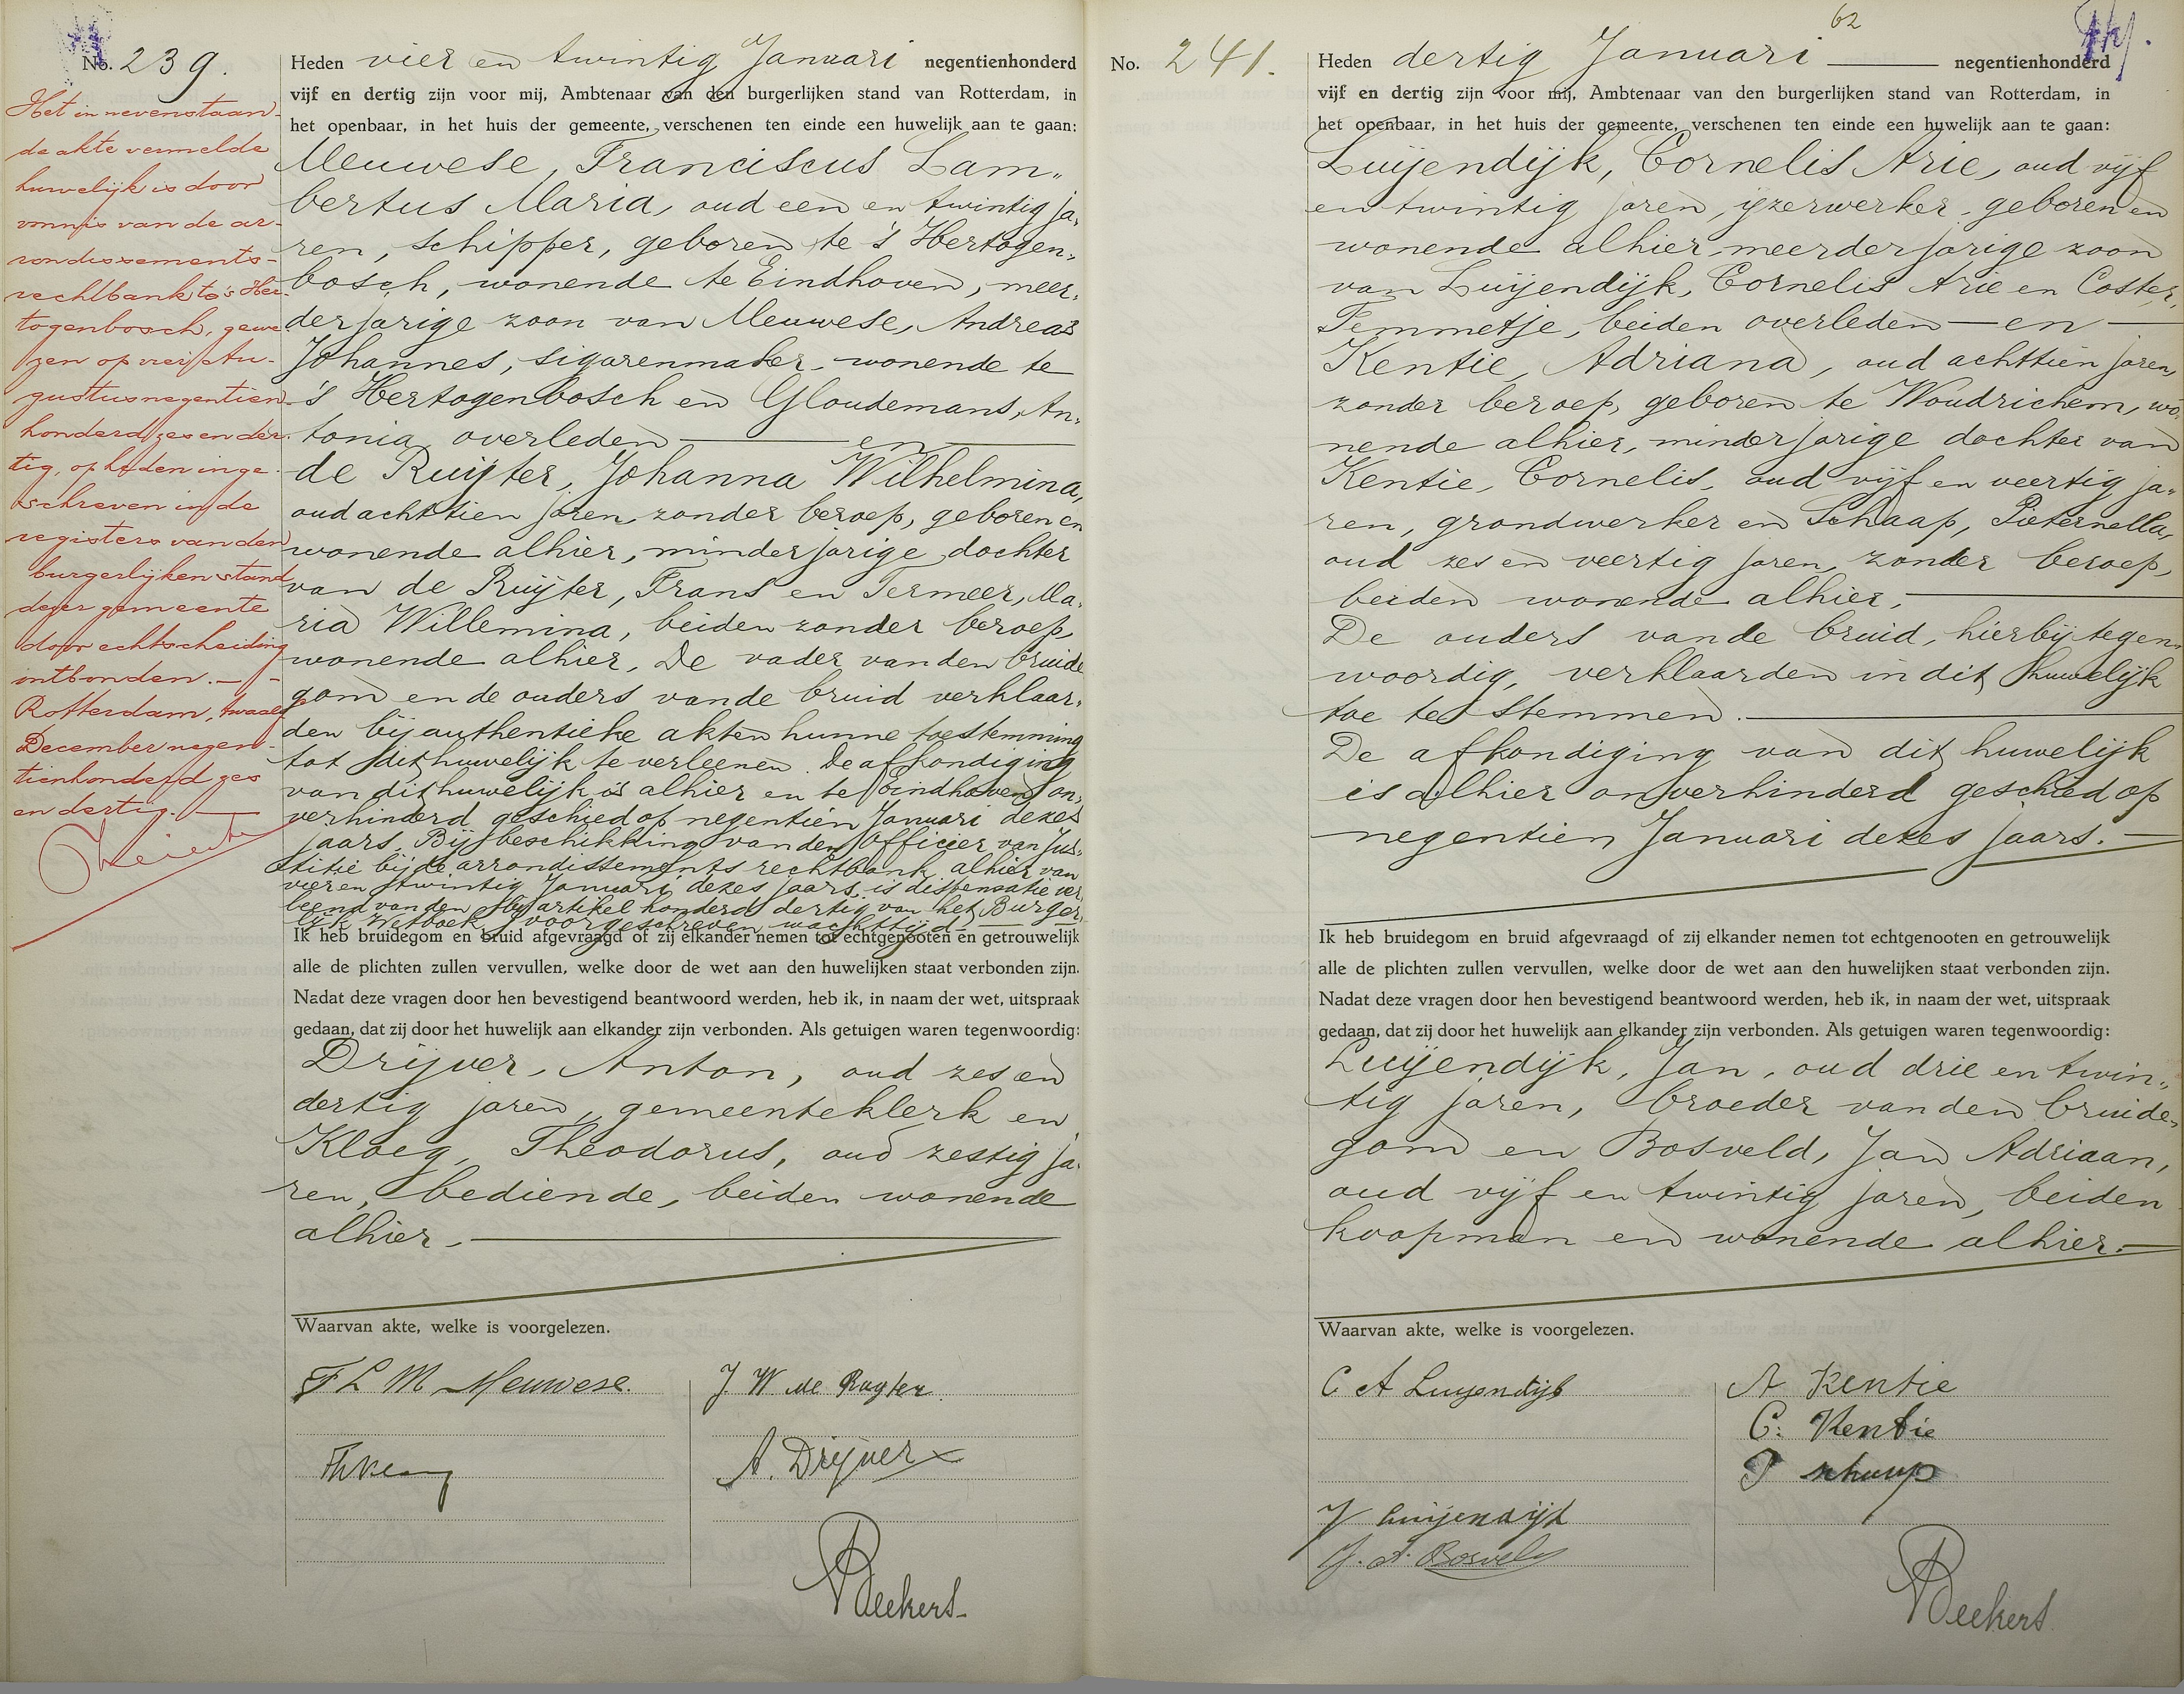 No. 239.
Heden vier en twintig Januari negentienhonderd
vijf en dertig zijn voor mij, Ambtenaar van den burgerlijken stand van Rotterdam, in
het openbaar, in het huis der gemeente, verschenen ten einde een huwelijk aan te gaan:
Meuwese, Franciscus Lam„
bertus Maria, oud een en twintig ja„
ren, schipper, geboren te 's Hertogen„
bosch, wonende te Eindhoven, meer„
derjarige zoon van Meuwese, Andreas
Johannes, sigarenmaker, wonende te
's Hertogenbosch en Gloudemans, An„
tonia, overleden — en —
de Ruijter, Johanna Wilhelmina,
oud achttien jaren, zonder beroep, geboren en
wonende alhier, minderjarige dochter
van de Ruijter, Frans en Termeer, Ma„
ria Willemina, beiden zonder beroep,
wonende alhier. De vader van den bruide
gom en de ouders van de bruid verklaar„
den bij authentieke akten hunne toestemming
tot dit huwelijk te verleenen. De afkondiging
van dit huwelijk is alhier en te Eindhoven on„
verhinderd geschied op negentien Januari dezes
jaars. Bij beschikking van den Officier van Jus„
titie bij de arrondissements rechtbank alhier van
vier en twintig Januari dezes jaars, is dispensatie ver„
leend van den bij artikel honderd dertig van het Burger„
lijk Wetboek voorgeschreven wachttijd. —
Ik heb bruidegom en bruid afgevraagd of zij elkander nemen tot echtgenooten en getrouwelijk
alle de plichten zullen vervullen, welke door de wet aan den huwelijken staat verbonden zijn.
Nadat deze vragen door hen bevestigend beantwoord werden, heb ik, in naam der wet, uitspraak
gedaan, dat zij door het huwelijk aan elkander zijn verbonden. Als getuigen waren tegenwoordig:
Drijver, Anton, oud zes en
dertig jaren, gemeenteklerk en
Kloeg, Theodorus, oud zestig ja„
ren, bediende, beiden wonende
alhier. —
Waarvan akte, welke is voorgelezen.
F L M Meuwese.
J. W de Ruyter
A. Drijver
Deekers
Het in nevenstaan-
de akte vermelde
huwelijk is door
vonnis van de ar-
rondissements-
rechtbank te 's Her-
togenbosch, gewe
zen op vier Au-
gustus negentien-
honderd zes en der-
tig, op heden inge-
schreven in de
registers van den
burgerlijken stand
dezer gemeente
door echtscheiding
ontbonden. — -
Rotterdam, twaalf
December negen-
tienhonderd zes
en dertig. —
62
No. 241.
Heden dertig Januari — negentienhonderd
vijf en dertig zijn voor mij, Ambtenaar van den burgerlijken stand van Rotterdam, in
het openbaar, in het huis der gemeente, verschenen ten einde een huwelijk aan te gaan:
Luijendijk, Cornelis Arie, oud vijf
en twintig jaren, ijzerwerker, geboren en
wonende alhier, meerderjarige zoon
van Luijendijk, Cornelis Arie en Coster,
Femmetje, beiden overleden — en —
Kentie, Adriana, oud achttien jaren,
zonder beroep, geboren te Woudrichem, wo„
nende alhier, minderjarige dochter van
Kentie, Cornelis, oud vijf en veertig ja„
ren, grondwerker en Schaap, Pieternella,
oud zes en veertig jaren, zonder beroep,
beiden wonende alhier. —
De ouders van de bruid, hierbij tegen„
woordig, verklaarden in dit huwelijk
toe te stemmen. —
De afkondiging van dit huwelijk
is alhier onverhinderd geschied op
negentien Januari dezes jaars. —
Ik heb bruidegom en bruid afgevraagd of zij elkander nemen tot echtgenooten en getrouwelijk
alle de plichten zullen vervullen, welke door de wet aan den huwelijken staat verbonden zijn.
Nadat deze vragen door hen bevestigend beantwoord werden, heb ik, in naam der wet, uitspraak
gedaan, dat zij door het huwelijk aan elkander zijn verbonden. Als getuigen waren tegenwoordig:
Luijendijk, Jan, oud drie en twin„
tig jaren, broeder van den bruide„
gom en Bosveld, Jan Adriaan,
oud vijf en twintig jaren, beiden
koopman en wonende alhier. —
Waarvan akte, welke is voorgelezen.
C A Luijendijk
A Kentie
C. Kentie
P schaap
J Luijendijk
J. A. Bosveld
Deekers